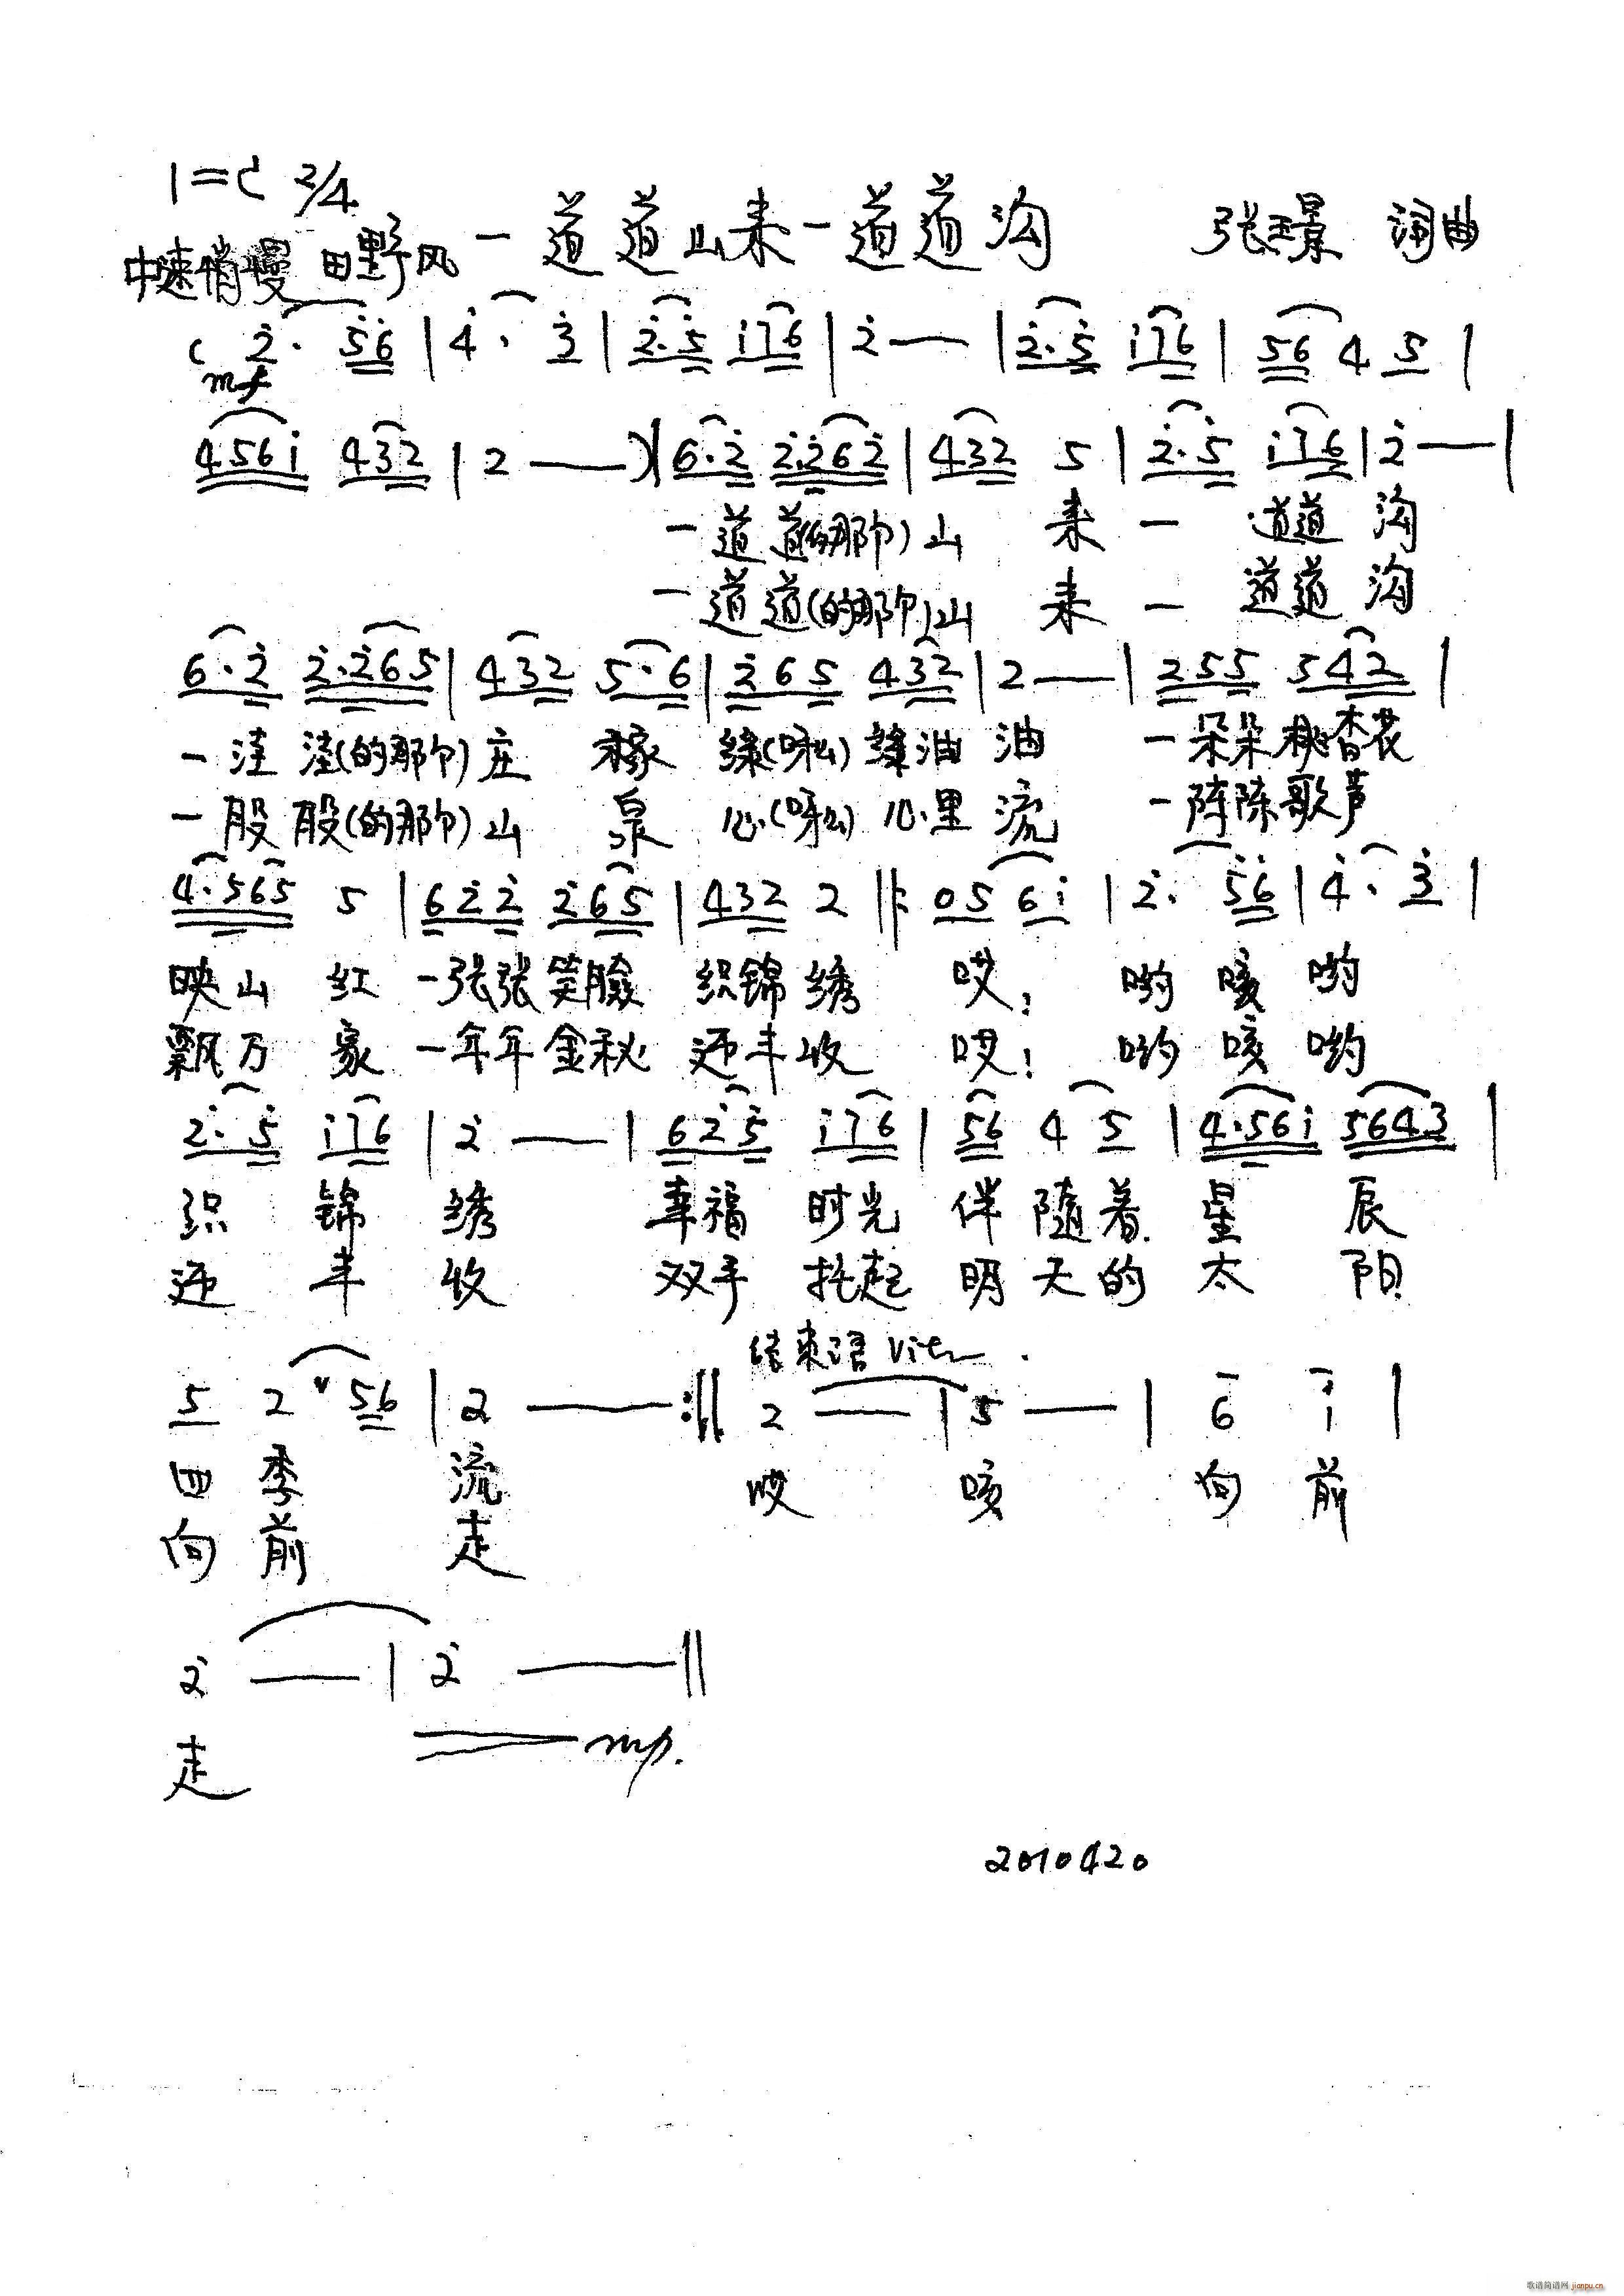 1=C 2/4
一道道山来一道道沟 张璟 词曲
中速稍慢 田野风
( 2̇· 5̇6̇ | 4̇· 3̇ | 2̇·5̇ i76 | 2̇ — | 2̇·5̇ i76 | 56 4 5 |
mf
456i 432 | 2 — )| 6·2̇ 2̇·2̇62̇ | 432 5 | 2̇·5̇ i76 | 2̇ — |
一道道(的那个)山 来 一 道道 沟
一道道(的那个)山 来 一 道道 沟
6·2̇ 2̇·2̇65 | 432 5·6 | 2̇65 432 | 2 — | 255 542 |
一洼洼(的那个)庄 稼 绿(呀么)绿油油 一朵朵桃杏花
一股股(的那个)山 泉 心(呀么)心里流 一阵阵歌声
4·565 5 | 62̇2̇ 2̇65 | 432 2 ‖: 05 6i | 2̇· 5̇6̇ | 4̇· 3̇ |
映山 红 一张张笑脸 织锦绣 哎! 哟 咳 哟
飘万 家 一年年金秋 迎丰收 哎! 哟 咳 哟
2̇·5̇ i76 | 2̇ — | 62̇5̇ i76 | 56 4 5 | 4·56i 5643 |
织 锦 绣 幸福 时光 伴 随着 星 辰
迎 丰 收 双手 托起 明 天的 太 阳
结束语 Vit
5 2 ᵛ 56 | 2 — :‖ 2 — | 5 — | 6 i |
四 季 流 哎 咳 向 前
向 前 走
2̇ — | 2̇ — ‖
走 mp.
20100420
歌谱简谱网 jianpu.cn